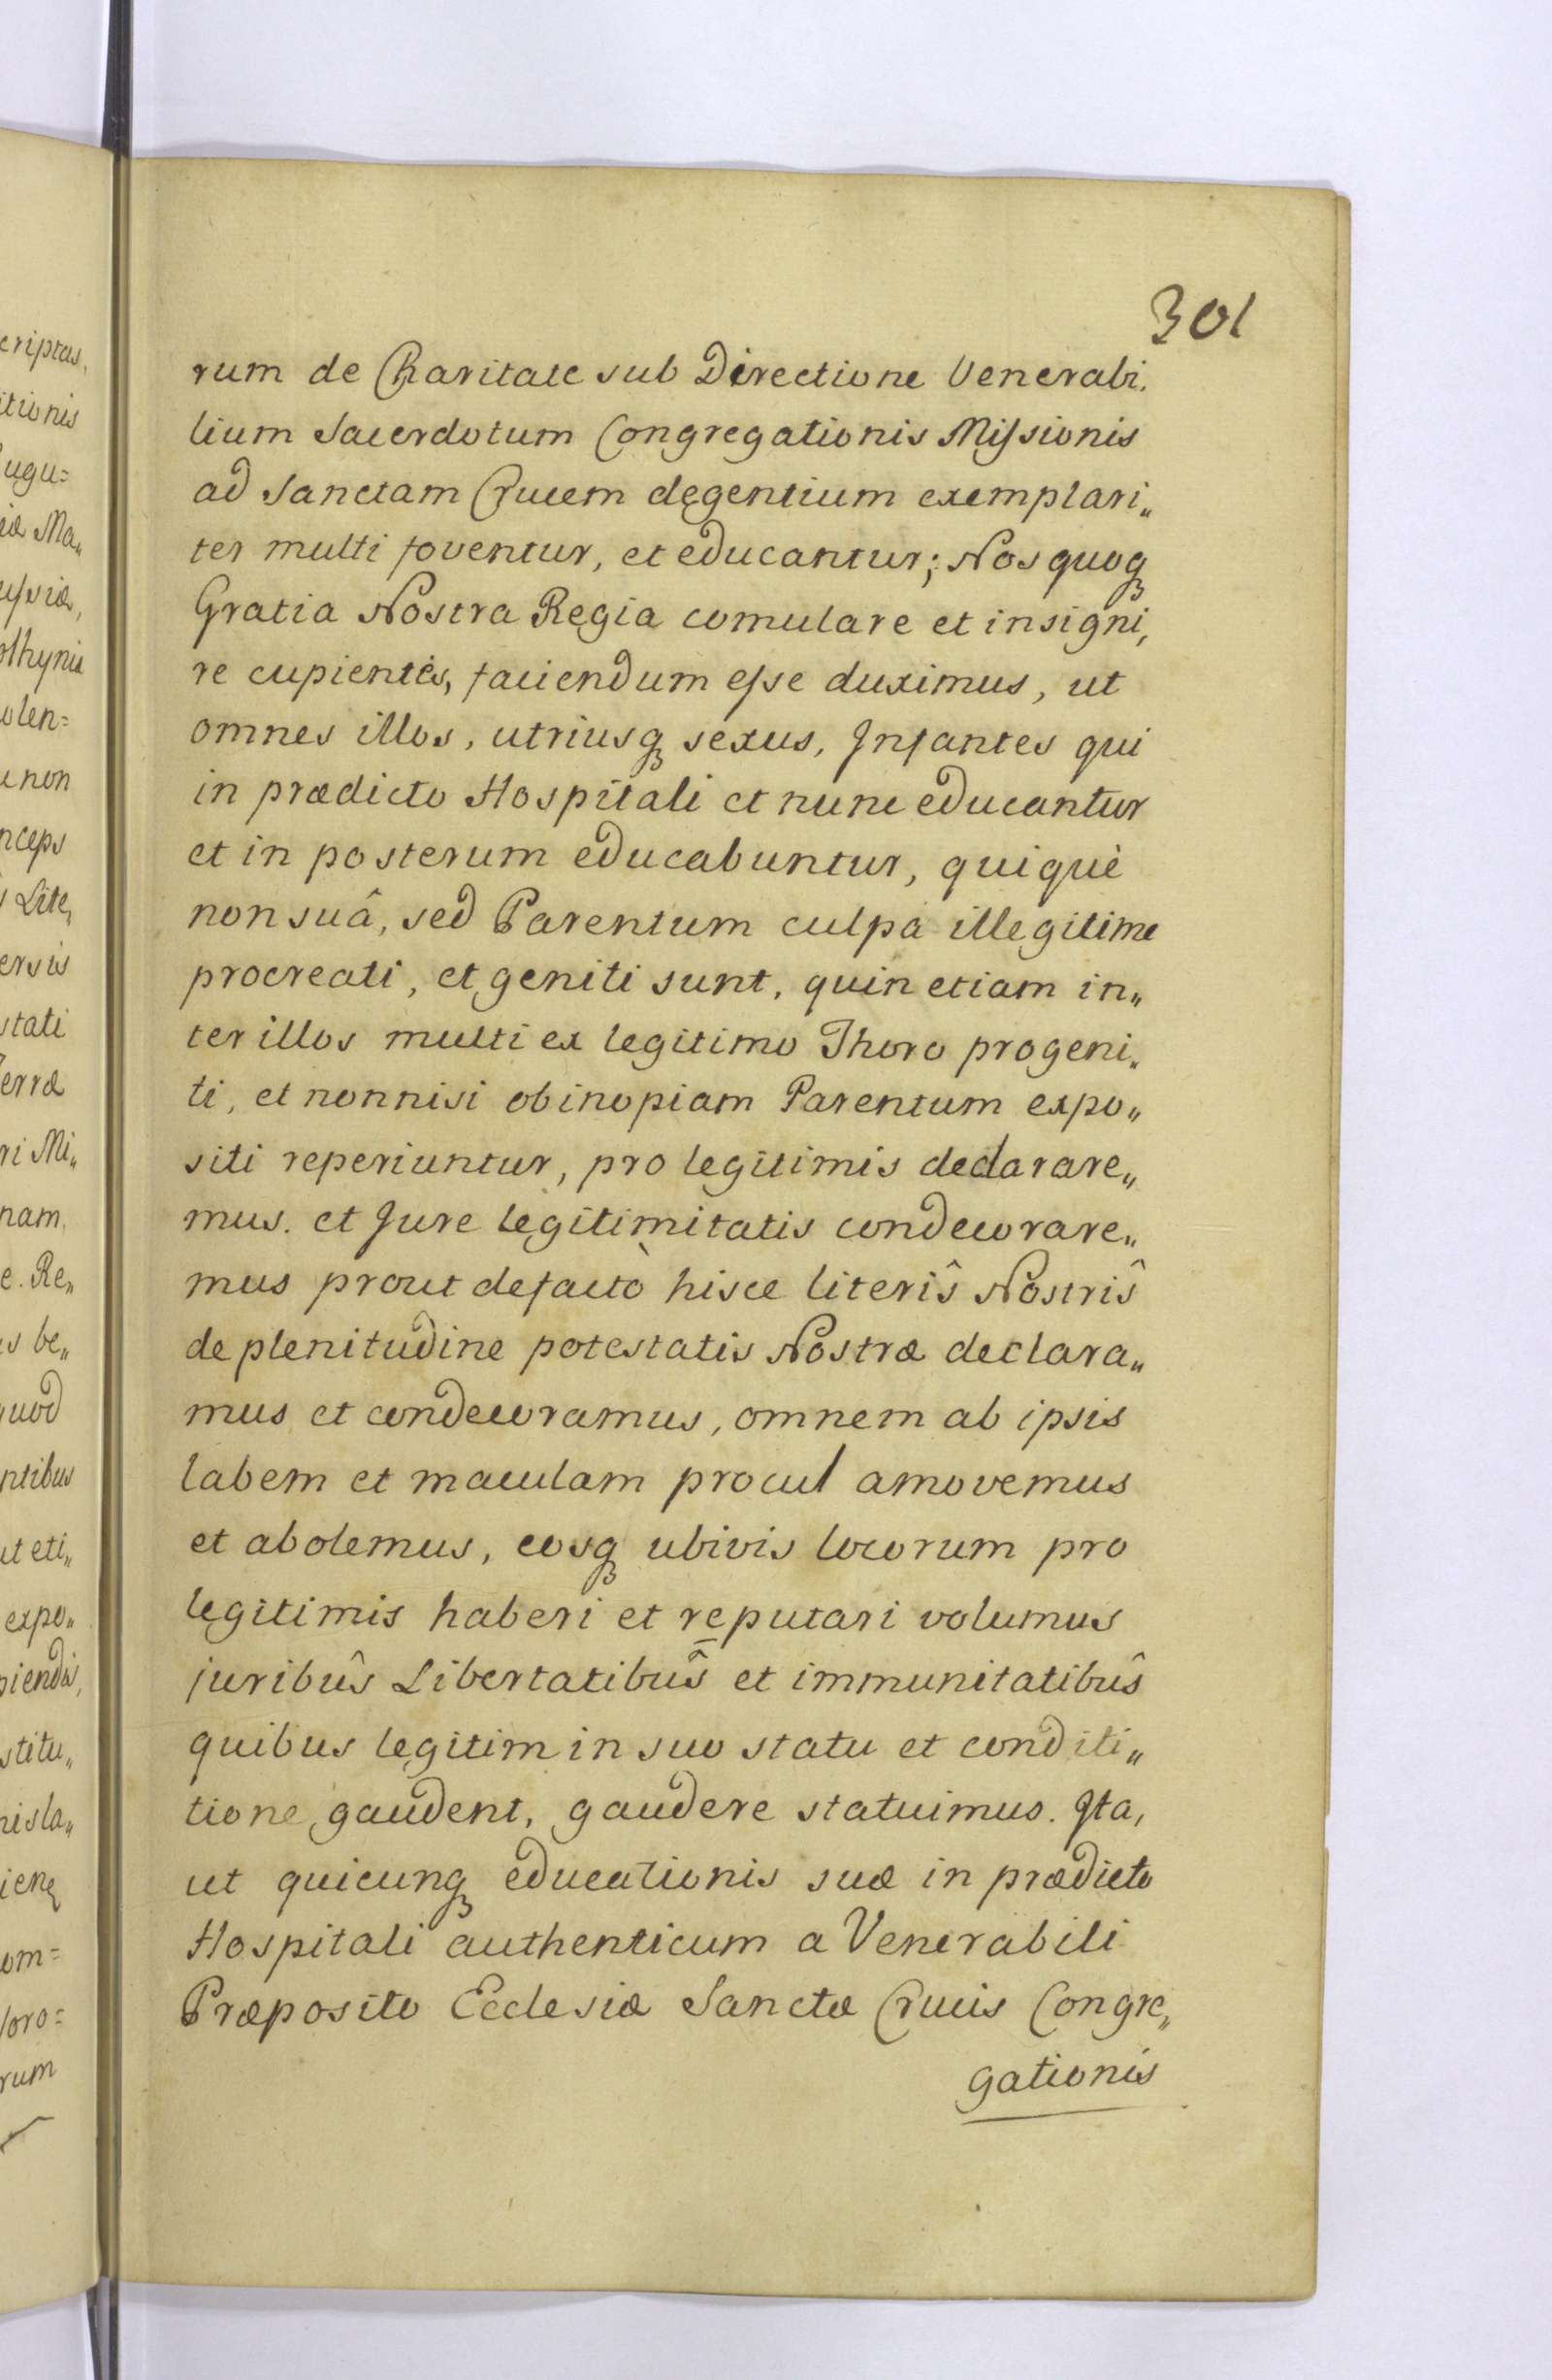 301
rum de Charitate sub Directione Venerabi.
lium Sacerdotum Congregationis Missionis
ad Sanctam Crucem degentium exemplari„
ter multi foventur, et educantur; Nos quoq
Gratia Nostra Regia comulare et insigni,
re cupientes, faciendum esse duximus, ut
omnes illos, utriusq sexus, Infantes qui
in prædicto Hospitali et nunc educantur
et in posterum educabuntur, quiquè
non suâ, sed Parentum culpa illegitime
procreati, et geniti sunt, quin etiam in„
ter illos multi ex legitimo Thoro progeni„
ti, et nonnisi ob inopiam Parentum expo„
siti reperiuntur, pro legitimis declarare„
mus. et Jure legitimitatis condecorare„
mus prout defactò hisce literîs Nostrîs
de plenitudine potestatis Nostræ declara„
mus et condecoramus, omnem ab ipsis
labem et maculam procul amovemus
et abolemus, eosq ubivis locorum pro
legitimis haberi et reputari volumus
juribûs Libertatibûs et immunitatibûs
quibus legitim in suo statu et conditi„
tione gaudent, gaudere statuimus. Ita,
ut quicunq educationis suæ in prædicto
Hospitali authenticum a Venerabili
Præposito Ecclesiæ Sanctæ Crucis Congre„
gationis
criptas,
itionis
ugu=
iæ Ma„
ussiæ,
olhynia
olen=
non
nceps
Lite,
ersis
stati
erræ
ri Mi„
nam,
e. Re„
s be„
quod
ntibus
ut eti„
expo„
piendis,
stitu„
nisla„
ieng
om=
oro=
rum